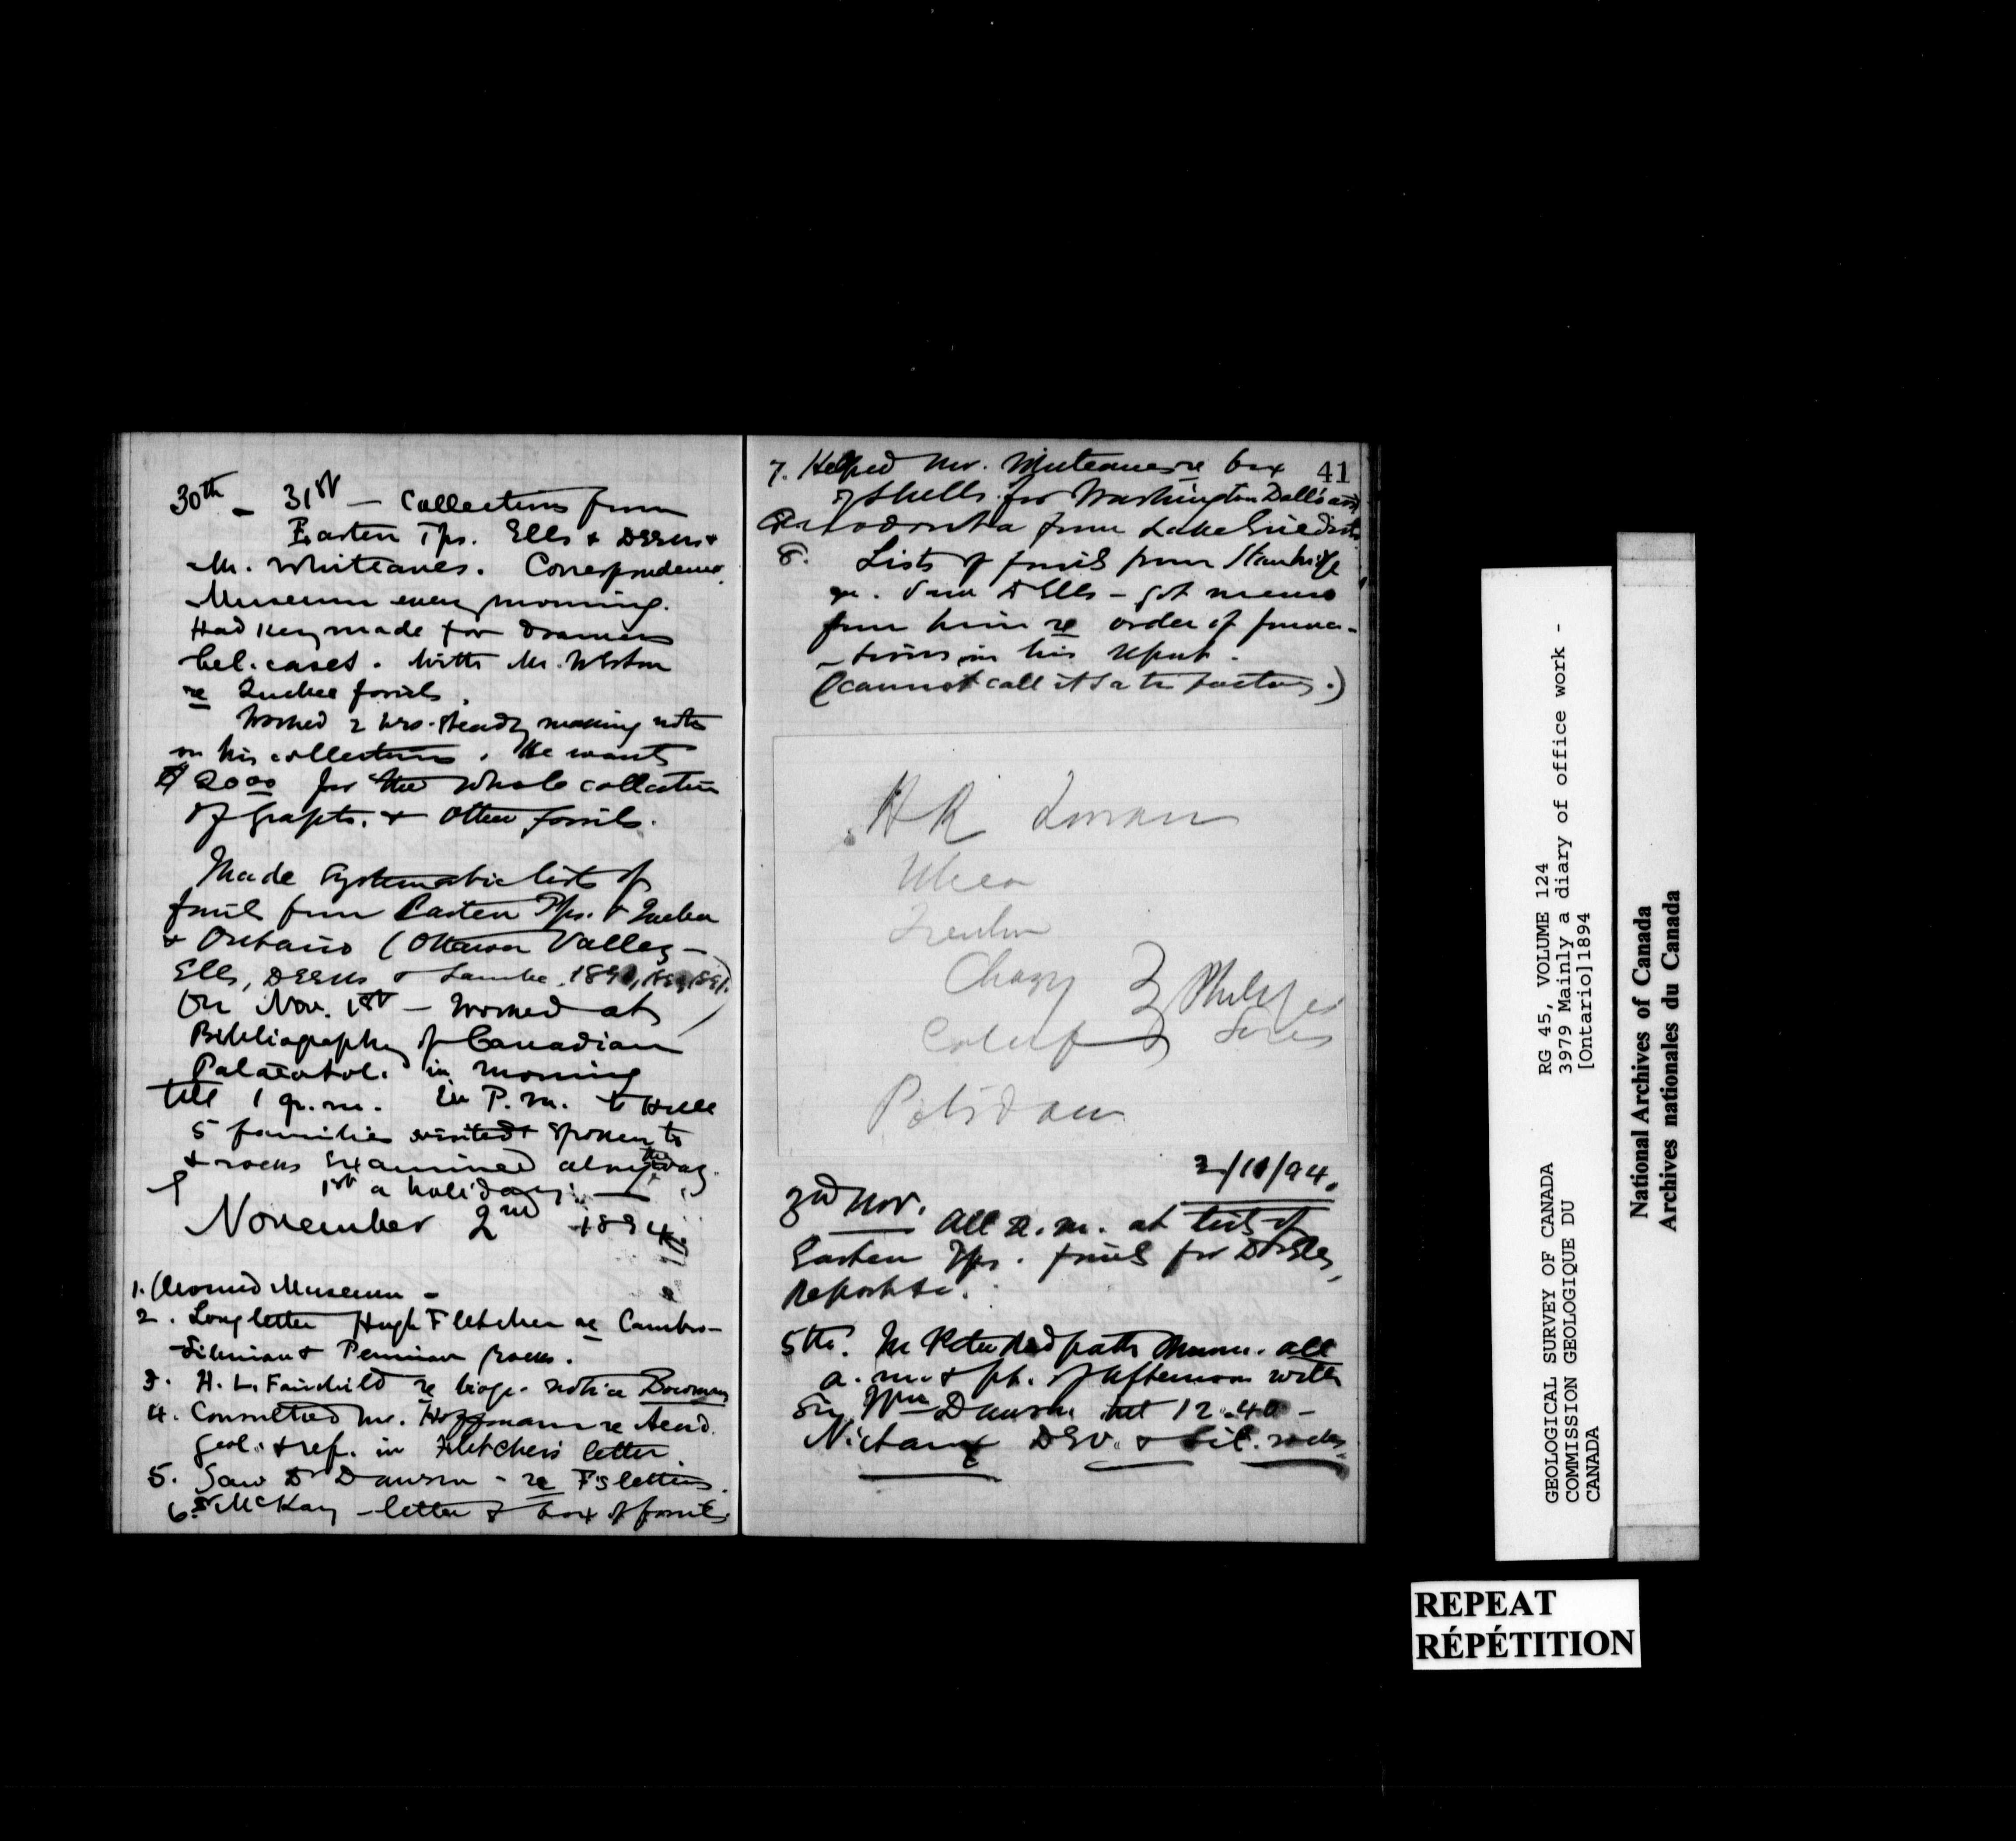 30th – 31st – Collections from
Eastern Tps. Ells & Deeks &
Mr. Whiteaves. Correspondence.
Museum every morning.
Had key made for drawers
bel. cases. With Mr. Weston
re Quebec fossils.
Worked 2 hrs. steady making notes
on his collections. He wants
$2000 for the whole collection
of grapts. & other fossils.
Made systematic lists of
fossils from Eastern Tps. & Quebec
& Ontario (Ottawa Valley –
Ells, Deeks & Lambe,
On Nov. 1st – worked at
Bibliography of Canadian
Palaeontol. in morning
till 1 p.m. In P.M. to Hull
5 families visited & spoken to
& rocks examined along the way.
1st a holiday.
November 2nd 1894.
1. Around Museum –
2. Long letter Hugh Fletcher re Cambro-
Silurian & Permian rocks.
3. H. L. Fairchild re biogr. notice Bowman
4. Consulted Mr. Hoffmann re Acad.
geol. & ref. in Fletcher's letter.
5. Saw Dr Dawson – re F's letters.
6. McKay – letter & box of fossils.
41
7. Helped Mr. Whiteaves re box
of shells for Washington Dall's
Anodonta from Lake
8. Lists of fossils from Stanbridge
Saw Dr Ells – got memo
from him re order of forma-
-tions in his report.
(cannot call it satisfactory.)
Utica
Trenton
Chazy
Calcif
Potsdam
Philips
2/11/94.
3rd Nov. All a.m. at lists of
Eastern Tps. fossils for Dr Ells,
Report &c.
5th. In Peter Redpath Museum all
a.m. & pt. of afternoon with
Sir Wm Dawson till 12.40 –
Nictaux Dev. & Sil. rocks.
GEOLOGICAL SURVEY OF CANADA
COMMISSION GEOLOGIQUE DU
CANADA
RG 45, VOLUME 124
3979 Mainly a diary of office work -
[Ontario]1894
National Archives of Canada
Archives nationales du Canada
REPEAT
RÉPÉTITION